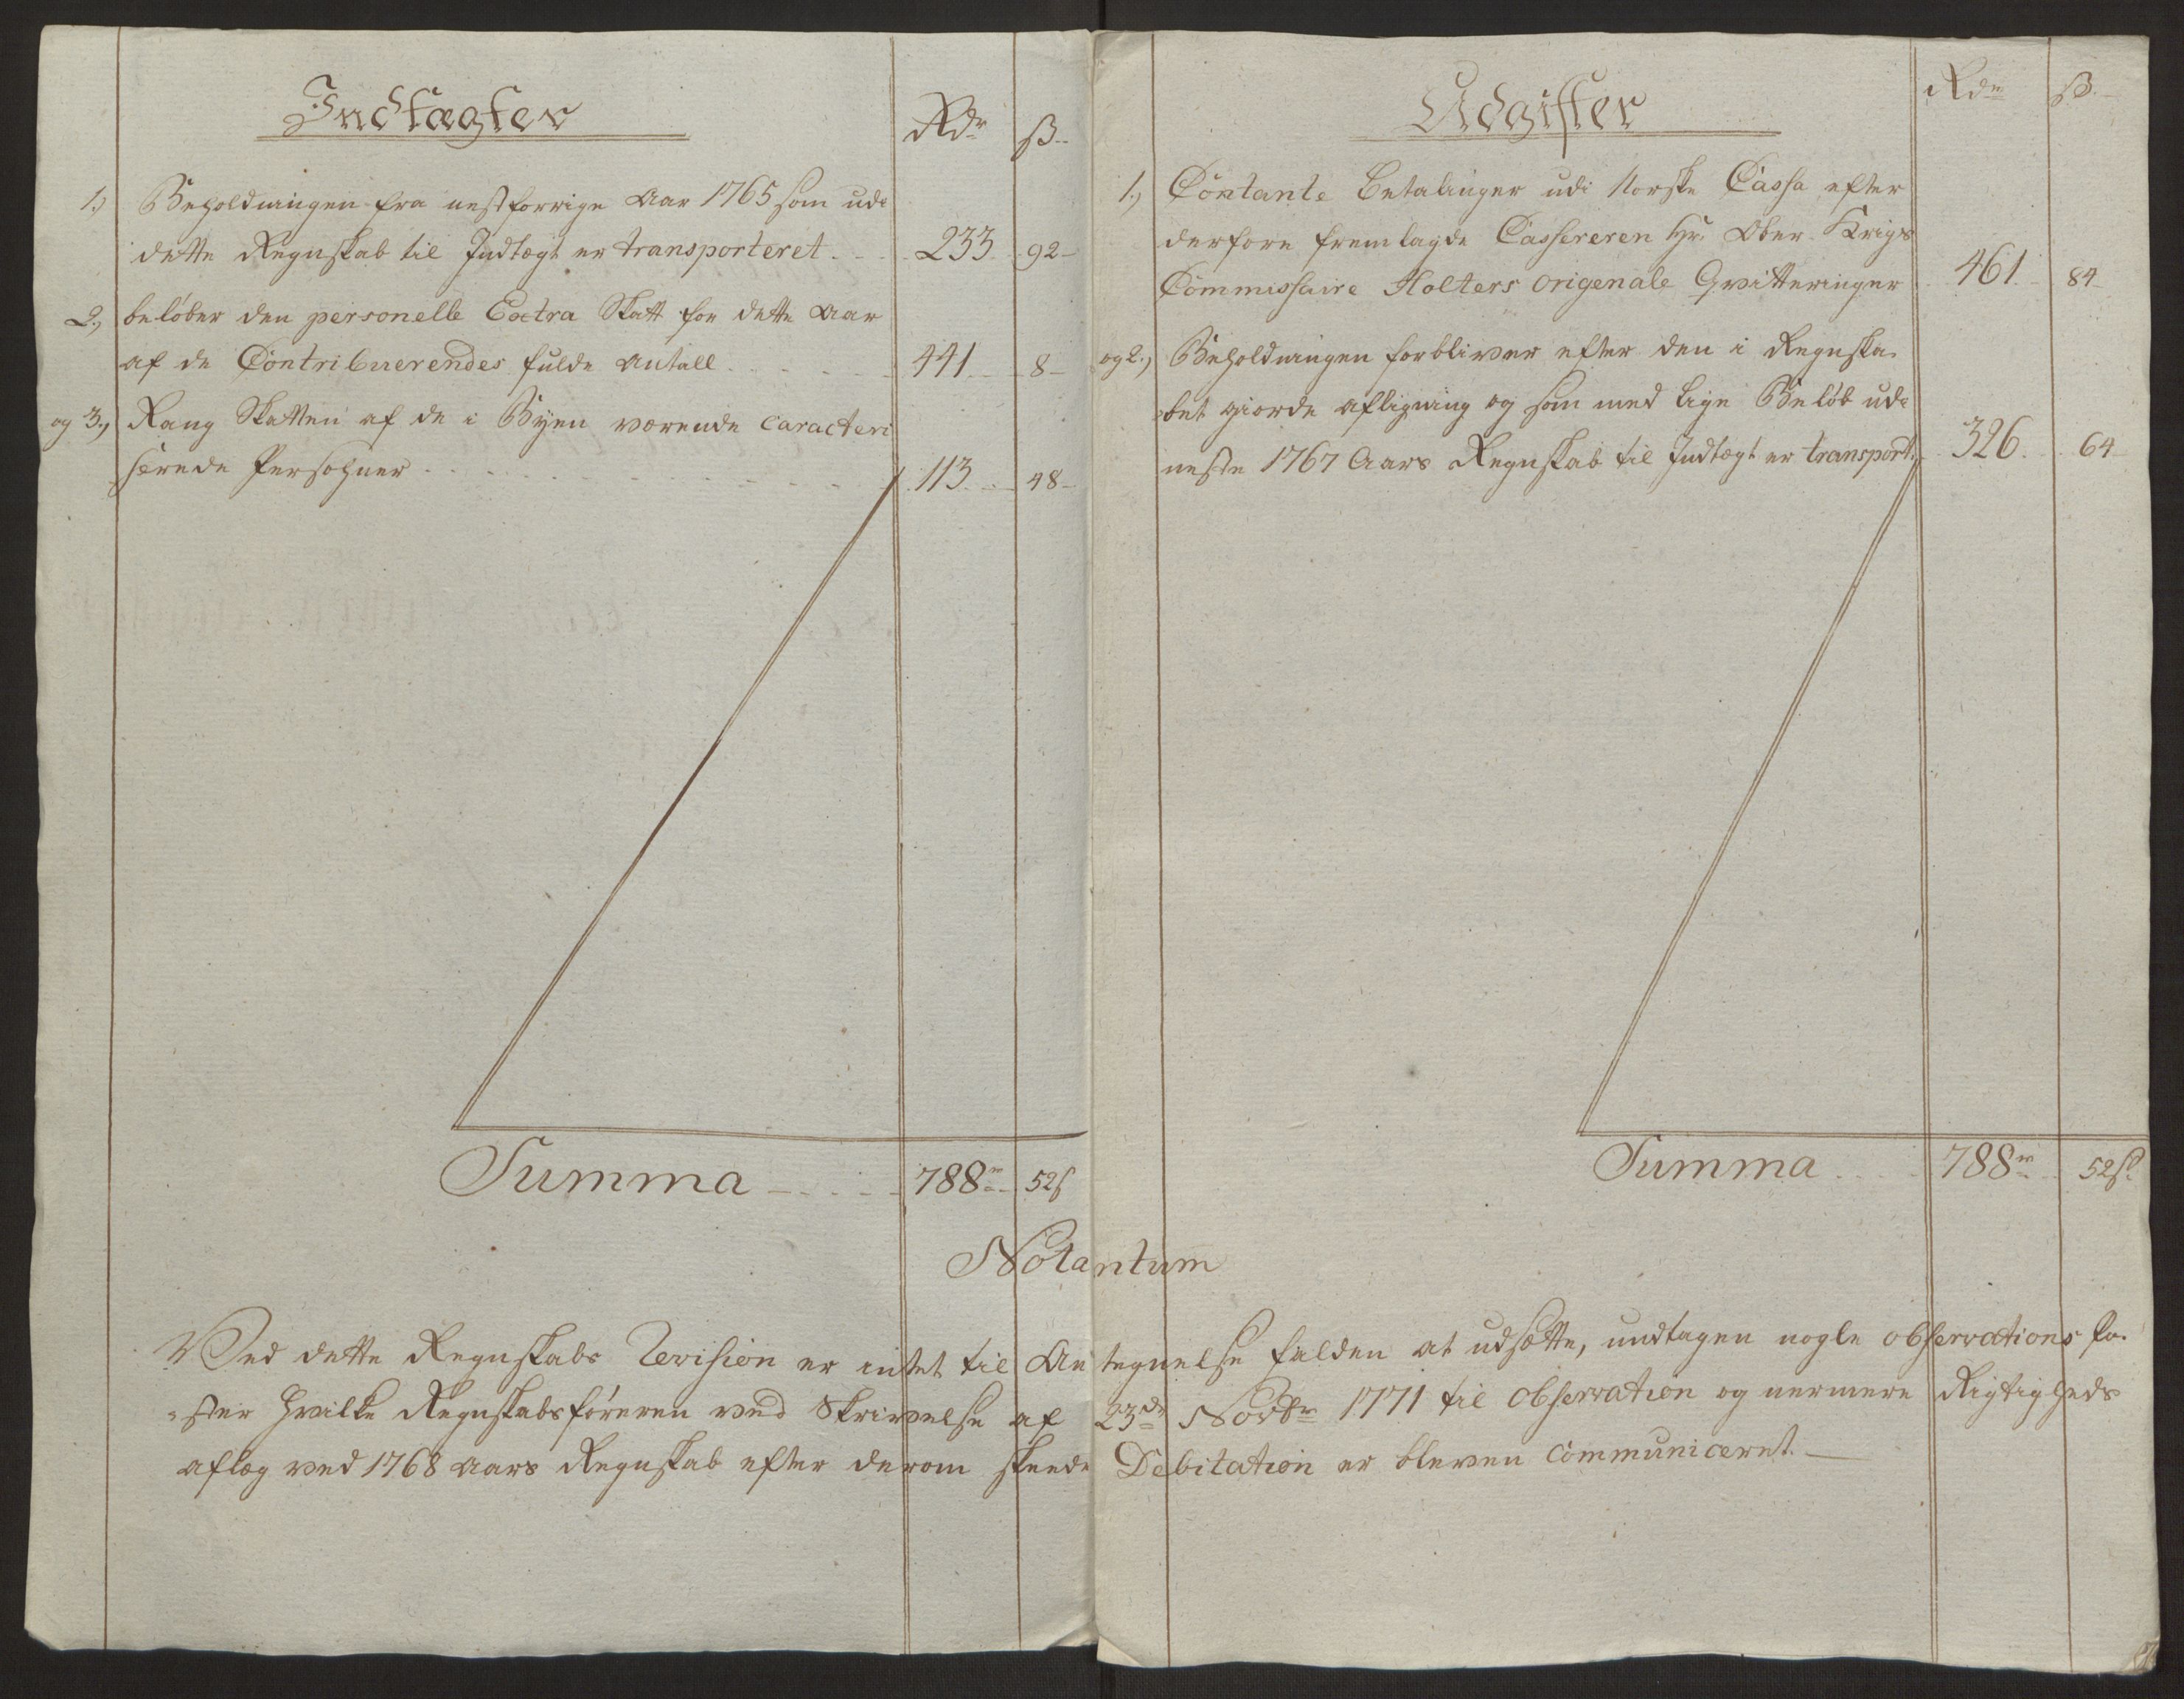 Indtægter
Rdr ß
1.) Beholdningen fra nestforrige Aar 1765 som udi
dette Regnskab til Indtegt er transporteret . . . 233 92
2.) beløber den personelle Extra Skatt for dette Aar
af de Contribuerendes fulde Antall . . . 441 8
og 3.) Rang Skatten af de i Byen værende Caracteri
serede Persohner . . . 113 48
Summa . . . 788 r 52 ß
Udgifter
Rdr ß
1.) Contante Betalinger udi Norske Cassa efter
derfore fremlagde Cassereren Hr. Ober-Krigs
Commissaire Holters origenale Qvitteringer 461 84
og 2.) Beholdningen forbliver efter den i Regnska
bet giorde afligning og som med lige Beløb udi
neste 1767 Aars Regnskab til Indtegt er transport. 326 64
Summa . . . 788 r 52 ß
Notantum
Ved dette Regnskabs Revision er intet til Antegnelse falden at udsætte, undtagen nogle observations po-
ster hvilke Regnskabsføreren ved Skrivelse af 23de Novbr 1771 til observation og nermere Rigtigheds
aflæg ved 1768 Aars Regnskab efter derom skeede Debitation er bleven Communiceret.